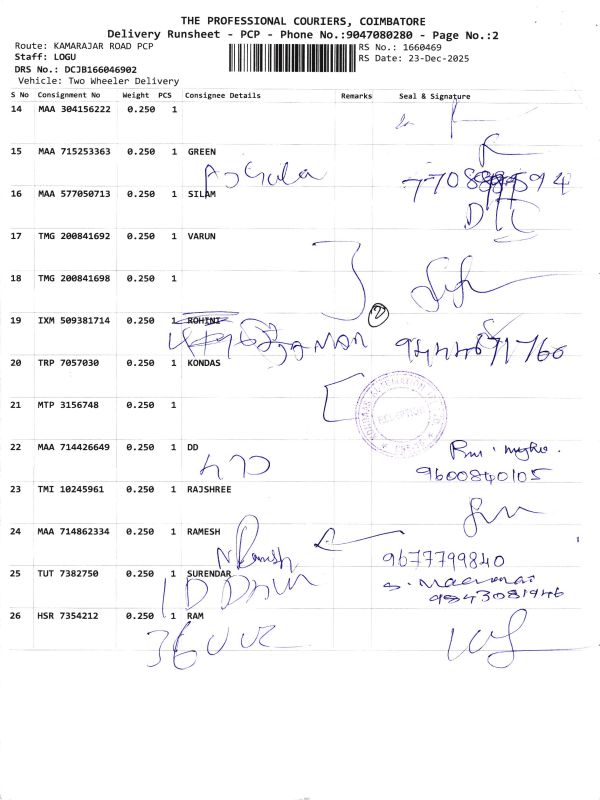 THE PROFESSIONAL COURIERS, COIMBATORE
Delivery Runsheet - PCP - Phone No.:9047080280 - Page No.:2
Route: KAMARAJAR ROAD PCP
RS No.: 1660469
Staff: LOGU
RS Date: 23-Dec-2025
DRS No.: DCJB166046902
Vehicle: Two Wheeler Delivery
S No Consignment No Weight PCS Consignee Details Remarks Seal & Signature
14 MAA 304156222 0.250 1
15 MAA 715253363 0.250 1 GREEN
16 MAA 577050713 0.250 1 SILAM
17 TMG 200841692 0.250 1 VARUN
18 TMG 200841698 0.250 1
19 IXM 509381714 0.250 1 ROHINI
2
20 TRP 7057030 0.250 1 KONDAS
21 MTP 3156748 0.250 1
RECEPTION
22 MAA 714426649 0.250 1 DD
9600840105
23 TMI 10245961 0.250 1 RAJSHREE
24 MAA 714862334 0.250 1 RAMESH
N Ramesh
9677799840
25 TUT 7382750 0.250 1 SURENDAR
9843081946
26 HSR 7354212 0.250 1 RAM